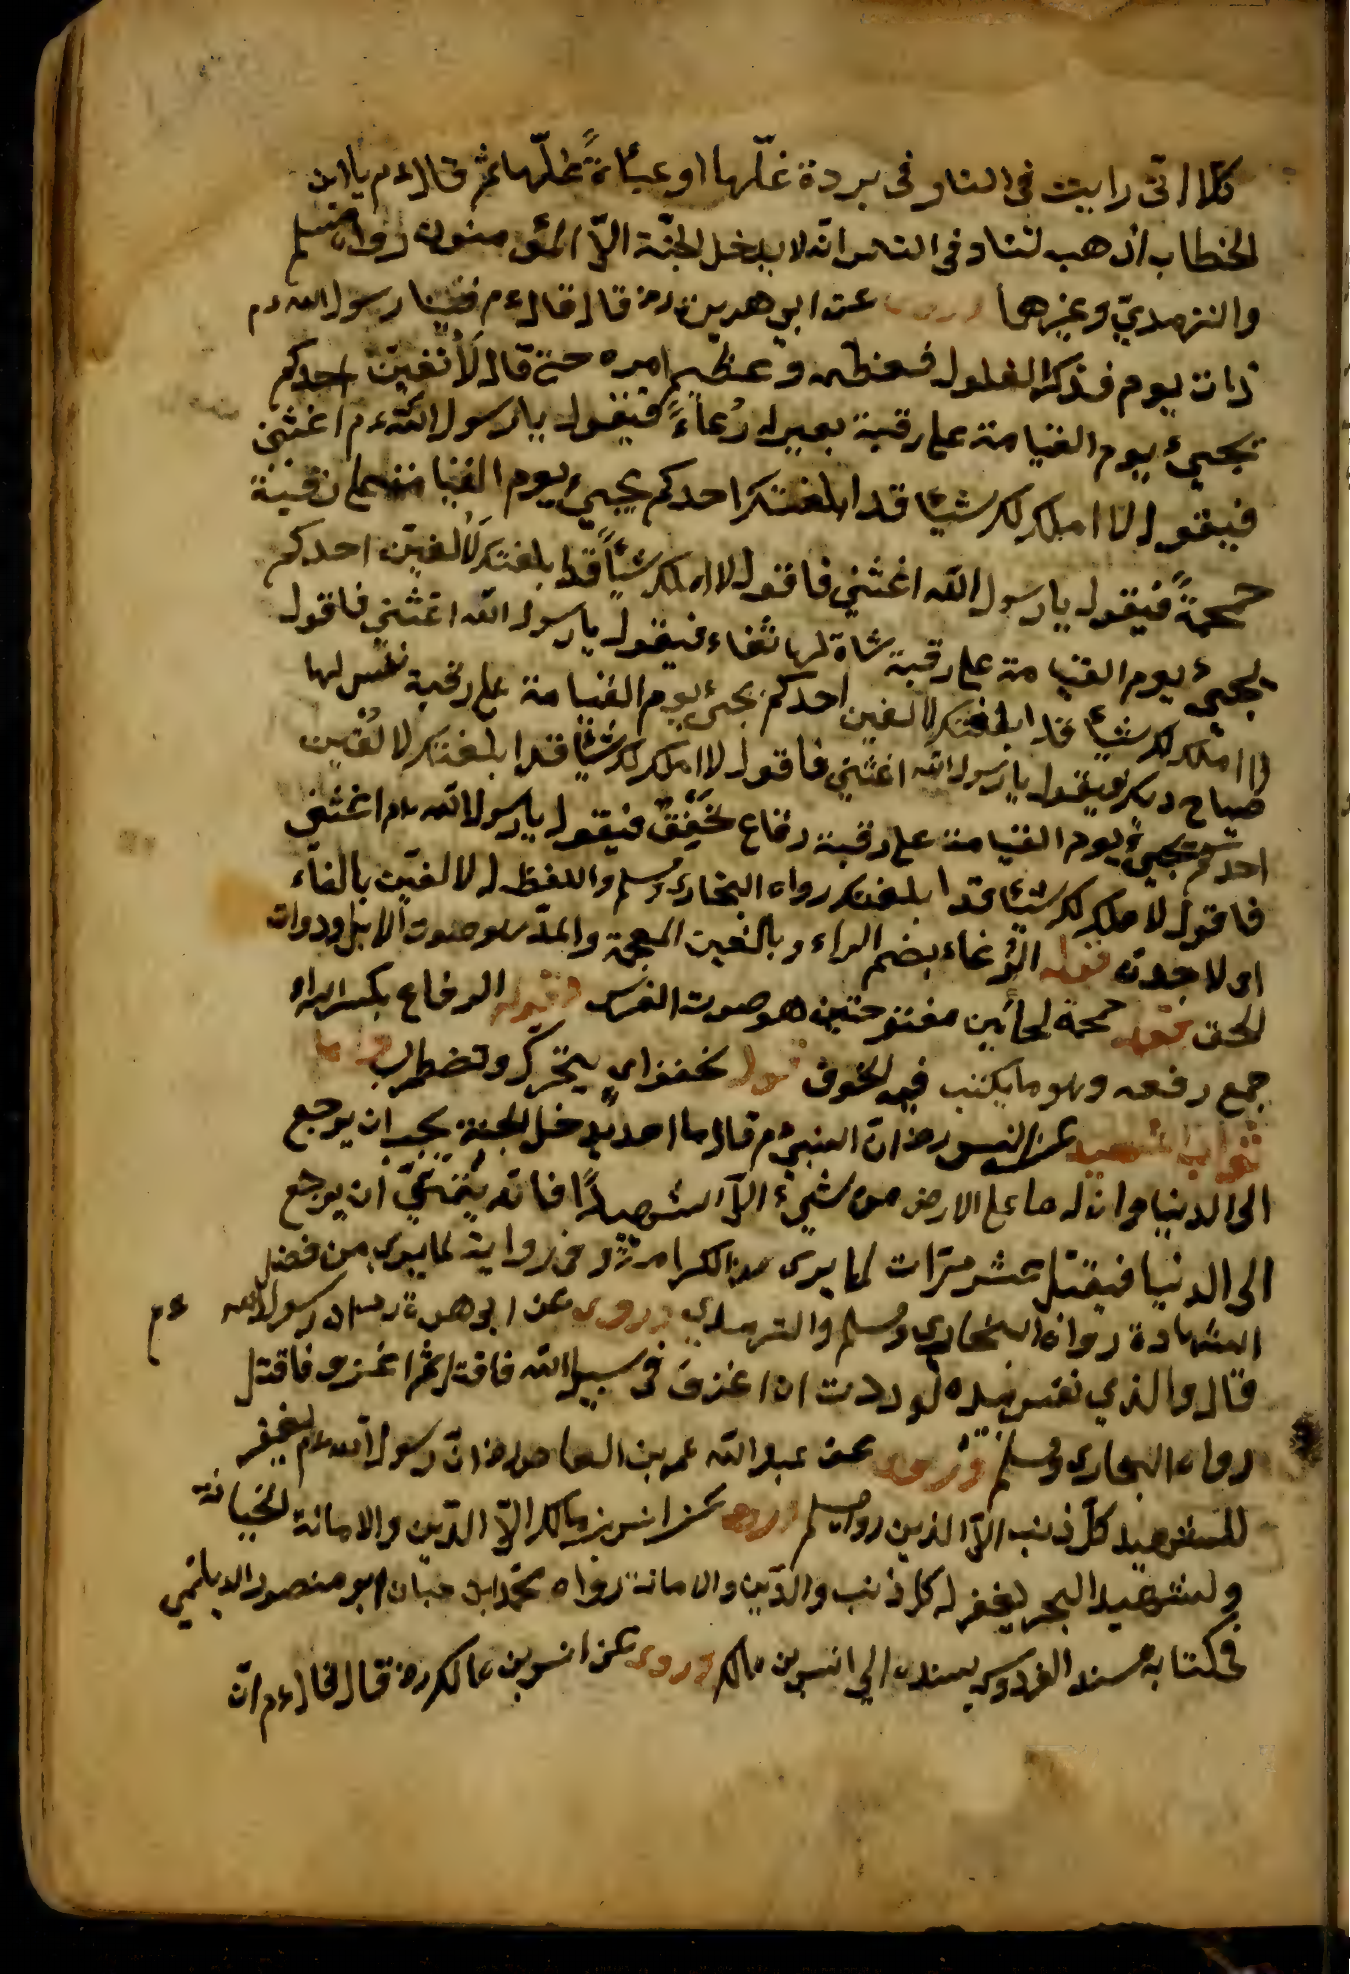 كلا انى رايت فى النار فى بردة غلّها او عباءةً غلّها ثم قال ءم يا ابن
الخطاب اذهب لتناد فى الناس انه لا يدخل الجنّة الاّ المؤمنون رواه مسلم
والترمديّ وغيرهما وروى عن ابي هريرة رض قال قال ءم فينا رسول الله ءم
ذات يوم فذكر الغلول فعظمه وعظّم امره حتى قال لَأُلفينّ احدكم
يجيئ يوم القيامة على رقبة بعير له رُغاءً فيقول يا رسول اللّه ءم اغثنى
فيقول لا املك لك شيئا قد ابلغتك احدكم يجيئ يوم القيامة على رقبة
حمحمةً فيقول يا رسول اللّه اغثني فاقول لا املك شيئاً قد ابلغتك لَأُلفينّ احدكم
يجيئ يوم القيامة على رقبة شاة لها ثغاء فيقول يا رسول الله اغثني فاقول
لا املك لك شيئا قد ابلغتك لا لفين احدكم يجيئ يوم القيامة على رقبة نفس لها
صياح ديك فيقول يا رسول الله اغثني فاقول لا املك لك شيئا قد ابلغتك لا لفين
احدكم يجيئ يوم القيامة على رقبة رقاع تخفق فيقول يا رسول الله ءم اغثني
فاقول لا املك لك شيئا قد ابلغتك رواه البخارى ومسلم واللفظ له لا لفين بالفاء
اى لا جدن قوله الرُّغاء بضم الراء وبالغين المعجمة والمدّ هو صوت الابل وذوات
الخف قوله حمحمة لحائين مفتوحتين هو صوت الفرس وقوله الرقاع بكسر الراء
جمع رقعه وهو ما يكتب فيه الحقوق قوله تخفق اي يتحرك وتضطرب
ثواب الشهيد عن انس رض انّ النبيّ ءم قال ما احد يدخل الجنة يحب ان يرجع
الى الدنيا وان له ما على الارض من شيء الاّ الشهيدًا فانه يتمنّى ان يرجع
الى الدنيا فيقتل عشر مرّات لما يرى من الكرامة وفى رواية لما يرى من فضل
الشهادة رواه البخاري ومسلم والترمدي وروى عن ابى هريرة ان رسول الله ءم
قال والذي نفس بيده لوددت ان اغزو فى سبيل الله فاقتل ثم اغزو فاقتل
رواه البخارى ومسلم وروى عن عبد اللّه عمر بن العاص رض انّ رسول الله ءم يغفر
للشهيد كلّ ذنب الاّ الدين رواه مسلم وروى عن انس بن مالك الاّ الدّين والامانة الخيانة
ولشهيد البحر يغفر له كل ذنب والدّين والامانة رواه محمّد ابن حبان ابو منصور الديلمي
فى كتابه مسند الفردوس بسنده الى انس بن مالك وروى عن انس بن مالك رض قال قال ءم انّ